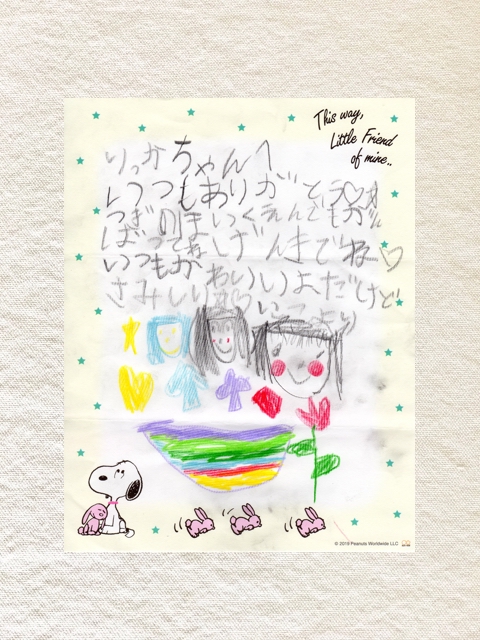 This way,
Little Friend
of mine..
りっかちゃんへ
いつもありがとう♡
つぎのほいくえんでもがん
ばってねげんきでね♡
いつもかわいいよ だけど
さみしい
いつ より
© 2019 Peanuts Worldwide LLC